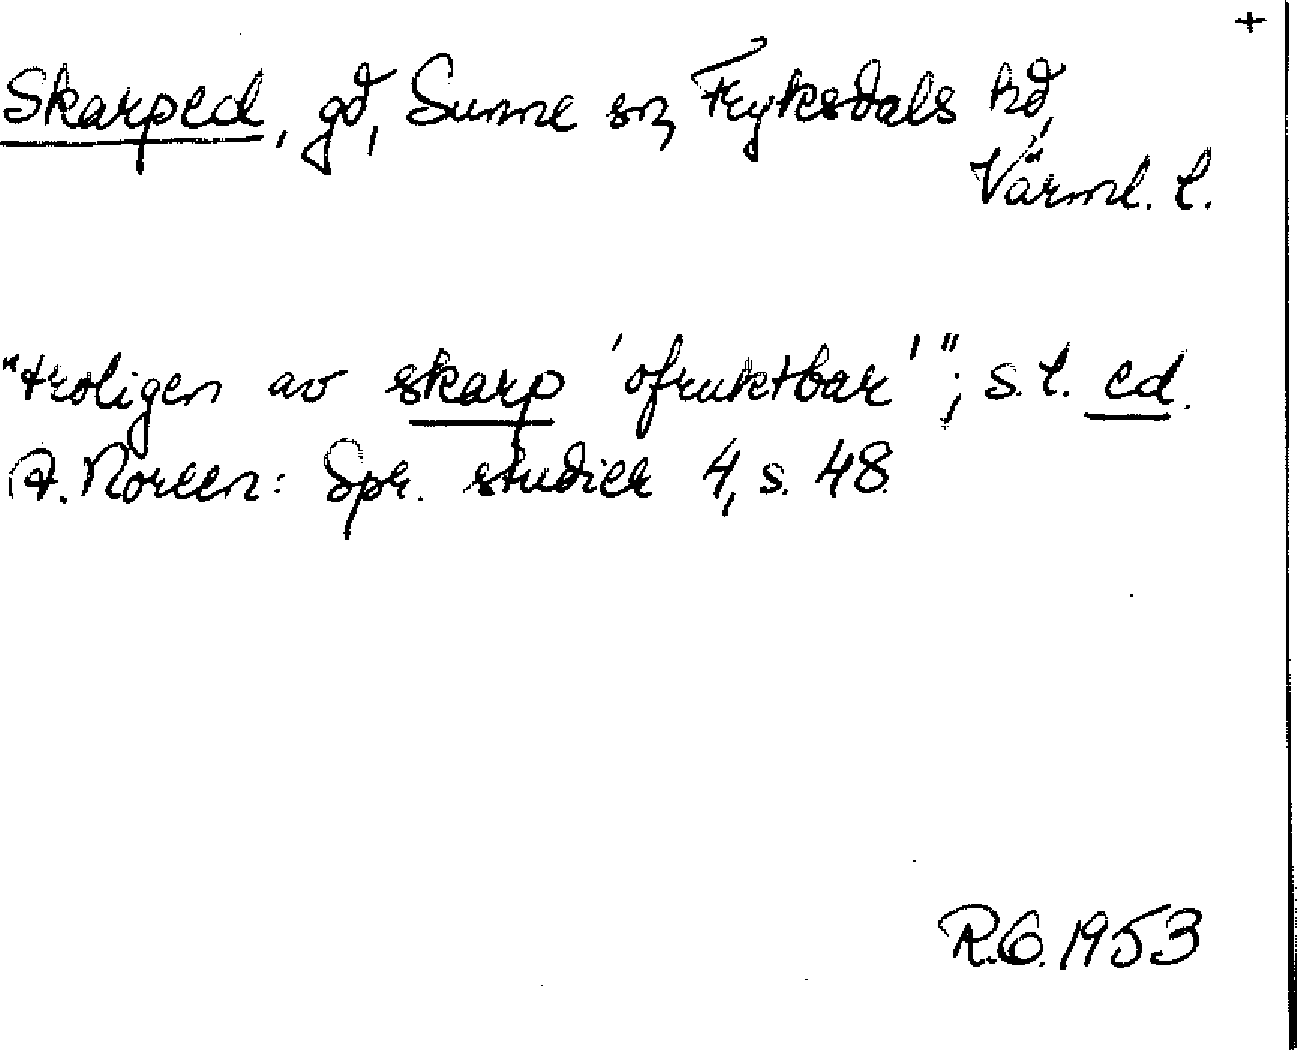 +
Skarped, gd, Sunne sn, Fryksdals hd,
Värml. l.
"troligen av skarp 'ofruktbar'"; s. l. ed.
A. Noreen: Spr. studier 4, s. 48.
R.O. 1953